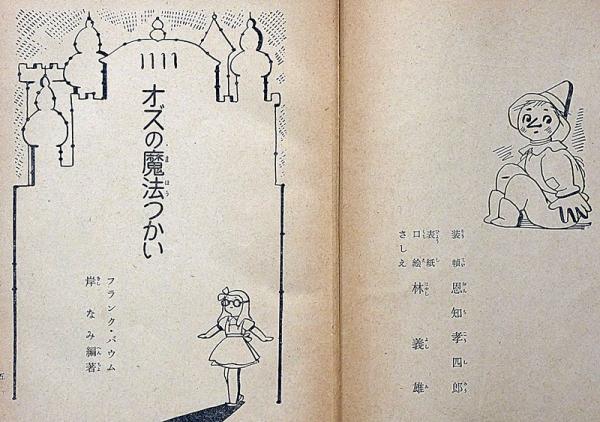 装幀 恩知孝四郎
表紙
口絵 林義雄
さしえ
オズの魔法つかい
フランク・バウム
岸なみ編著
五